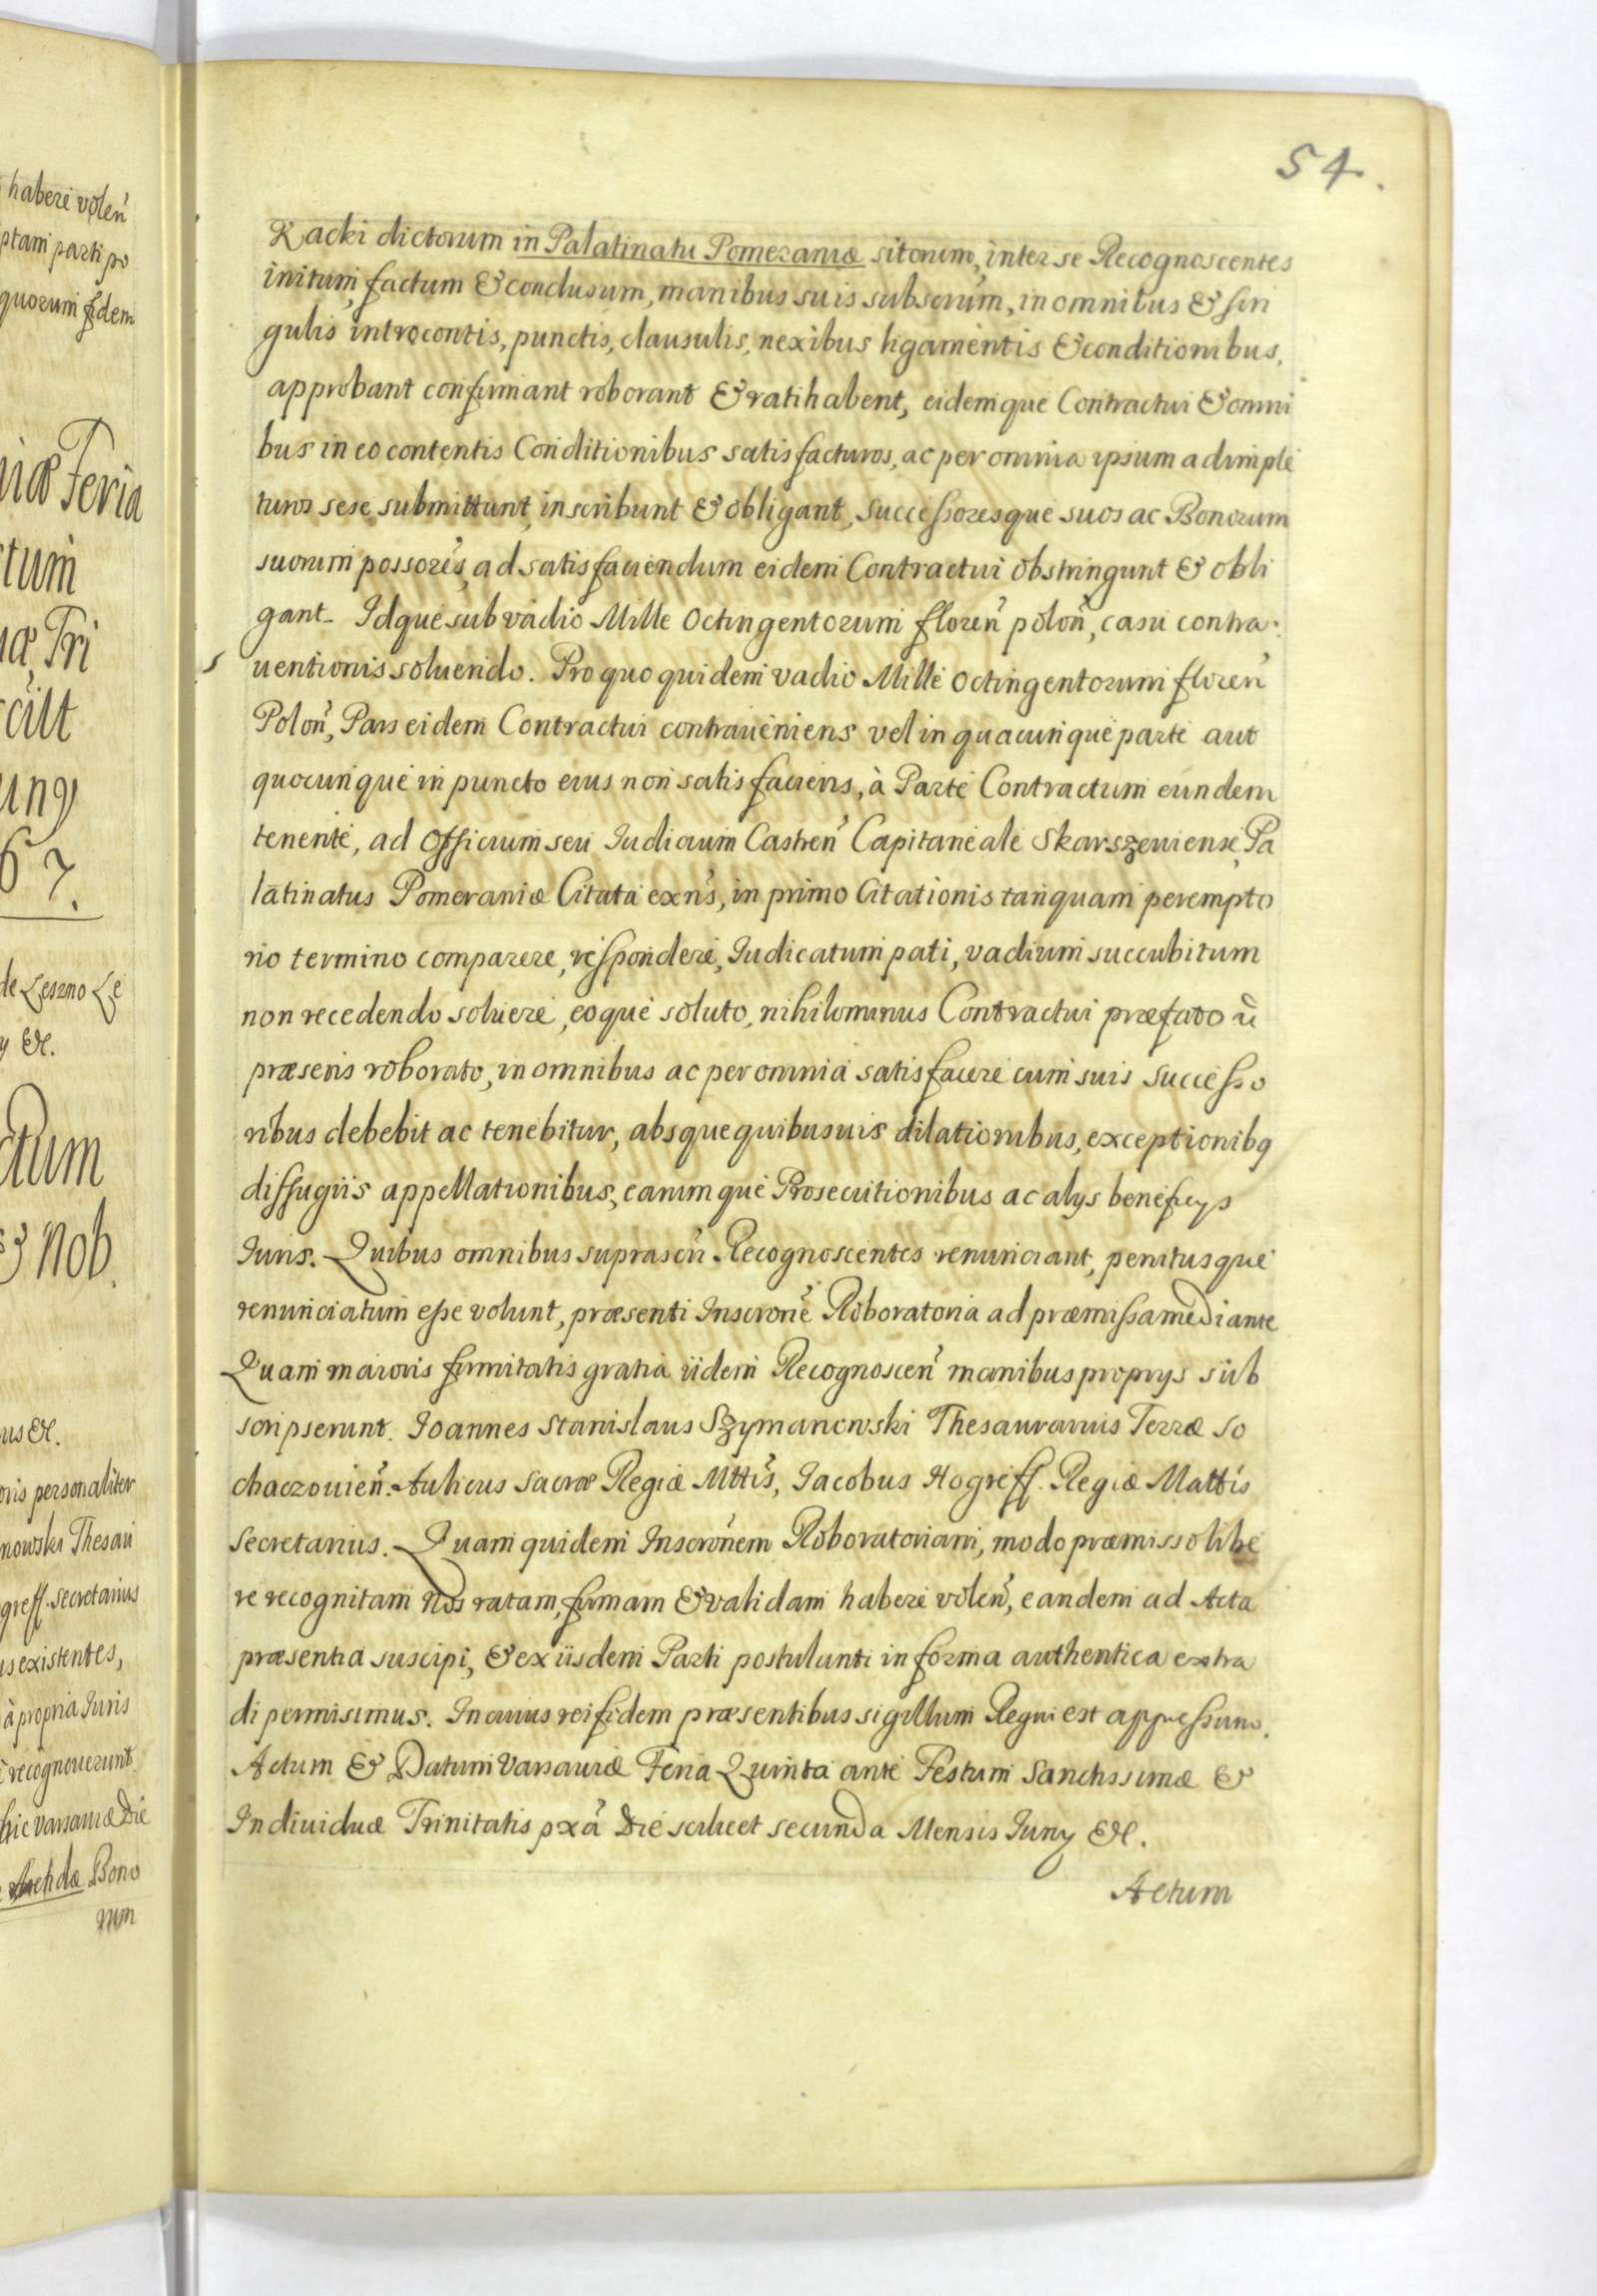 haberi volen̄
ptam parti po
quorum fidem
niæ Feria
ctum
næ Tri
cilt
uny
67.
de Leszno Le
y &c.
ctum
& Nob.
us &c.
oris personaliter
nowski Thesau
greff. secretarius
us existentes,
à propria Iuris
recognouerunt
hic Varsauiæ Die
Bono
rum
54.
Racki dictorum in Palatinatu Pomeraniæ sitorum, inter se Recognoscentes
initum, factum & conclusum, manibus suis subscrūm, in omnibus & sin
gulis introcontis, punctis, clausulis, nexibus ligamentis & conditionibus,
approbant confirmant roborant & ratihabent, eidemque Contractui & omni
bus in eo contentis Conditionibus satisfacturos, ac per omnia ipsum adimple
turos sese submittunt, inscribunt & obligant, Successoresque suos ac Bonorum
suorum possorēs, ad satisfaciendum eidem Contractui obstringunt & obli
gant. Idque sub vadio Mille Octingentorum floren̄ polon̄, casu contra
uentionis soluendo. Pro quo quidem vadio Mille Octingentorum floren̄
Polon̄, Pars eidem Contractui contraueniens vel in quacunque parte aut
quocunque in puncto eius non satisfaciens, à Parte Contractum eundem
tenente, ad Officium seu Iudicium Castren̄ Capitaneale Skarszeuiense, Pa
latinatus Pomeraniæ Citata exn̄s, in primo Citationis tanquam perempto
rio termino comparere, respondere, Iudicatum pati, vadium succubitum
non recedendo soluere, eoque soluto, nihilominus Contractui præfato ū
præsens roborato, in omnibus ac per omnia satisfacere cum suis Successo
ribus debebit ac tenebitur, absque quibusuis dilationibus, exceptionibq
diffugiis appellationibus, earumque Prosecutionibus ac alijs beneficijs
Iuris. Quibus omnibus suprascr̄ Recognoscentes renunciant, penitusque
renunciatum esse volunt, præsenti Inscronē Roboratoria ad præmissa mediante
Quam maioris firmitatis gratia iidem Recognoscen̄ manibus proprijs sub
scripserunt. Ioannes Stanislaus Szymanowski Thesaurarius Terræ So
chaczouien̄. Aulicus Sacræ Regiæ Mttīs, Iacobus Hogreff. Regiæ Mattis
Secretarius. Quam quidem Inscronēm Roboratoriam, modo præmisso libe
re recognitam Nos ratam, firmam & validam habere volen̄, eandem ad Acta
præsentia suscipi, & ex iisdem Parti postulanti in forma authentica extra
di permisimus. In cuius rei fidem præsentibus sigillum Regni est appressum.
Actum & Datum Varsauiæ Feria Quinta ante Festum Sanctissimæ &
Indiuiduæ Trinitatis pxā Die scilicet secunda Mensis Iuny &c.
Actum